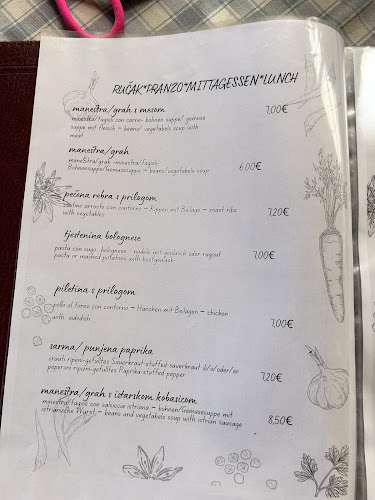 RUČAK*PRANZO*MITTAGESSEN*LUNCH
maneštra/grah s mesom 7,00€
minestra/fagioli con carne- bohnen suppe/ gemuse
suppe mit fleisch – beans/ vegetabels soup with
meat
maneštra/grah
maneštra/grah -minestra/fagioli-
Bohnensuppe/Gemuesesuppe – beans/vegetabels soup 6,00€
pečena rebra s prilogom
costine arrosto con contorno – Rippen mit Beilage – roast ribs 7,20€
with vegetables
tjestenina bolognese
pasta con sugo bolognese - nudeln mit goulasch oder ragout
pasta or mached potatoes with 7,00€
piletina s prilogom
pollo al forno con contorno – Hanchen mit Beilagen – chicken
with sidedish 7,00€
sarma/ punjena paprika
crauti ripieni-gefulltes Sauerkraut-stuffed sauerkraut ili/o/oder/or
peperoni ripieni-gefulltes Paprika-stuffed pepper 7,20€
maneštra/grah s istarskom kobasicom
minestra/fagioli con salsiccie istriana – bohnen/Gemuesesuppe mit
istrianische Wurst – beans and vegetabels soup with istrian sausage 8,50€